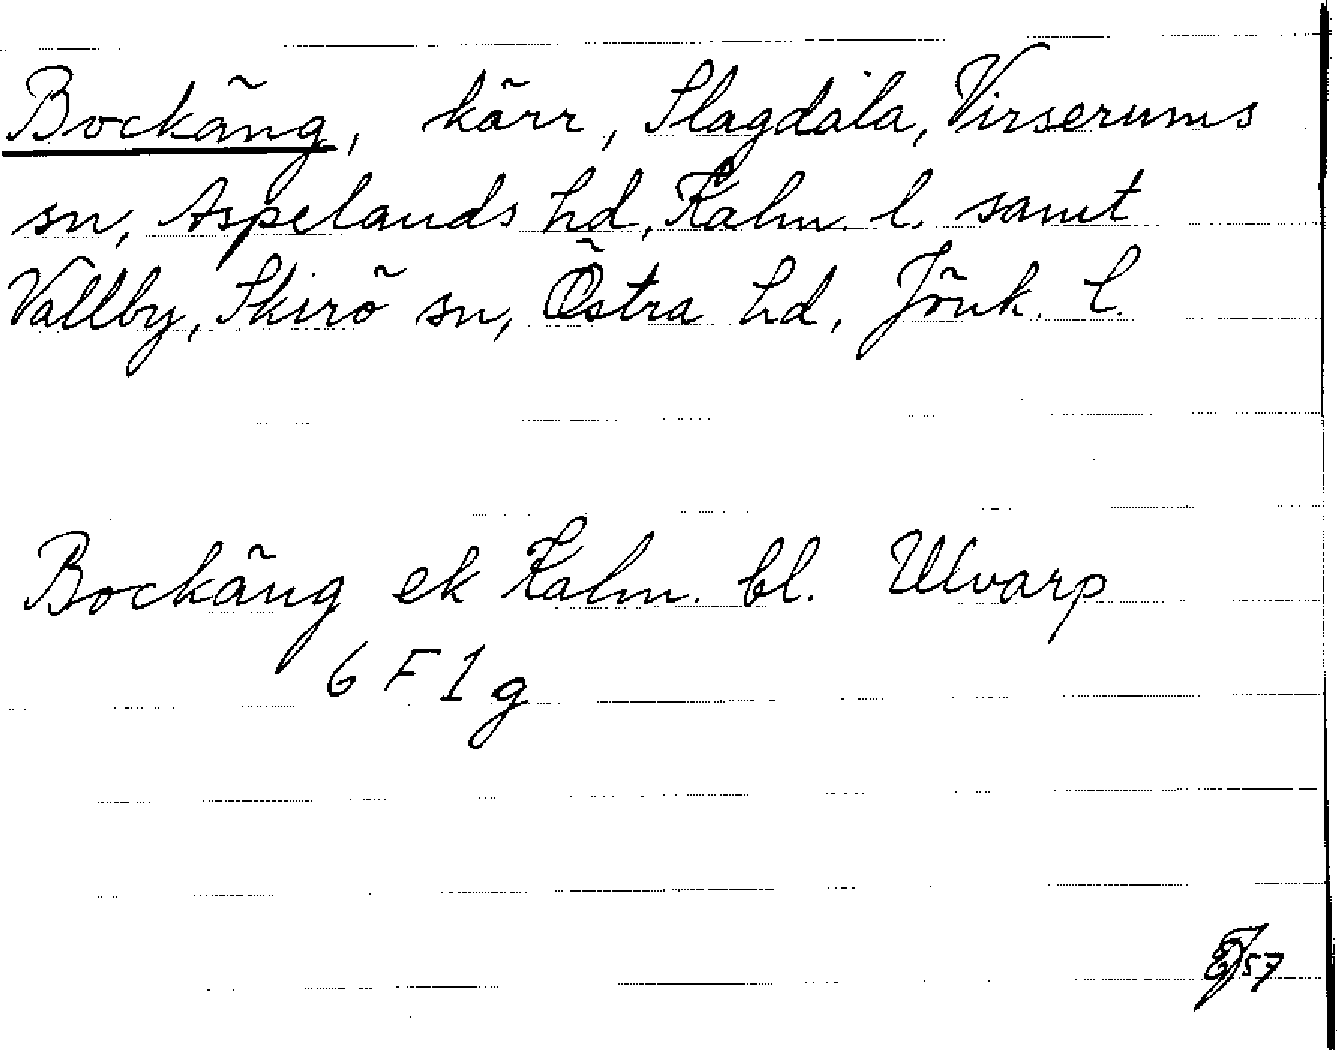 Bockäng, kärr, Slagdala, Virserums
sn, Aspelands hd, Kalm. l. samt
Vallby, Skirö sn, Östra hd, Jönk. l.
Bockäng ek Kalm. bl. Ulvarp
6 F 1 g
57